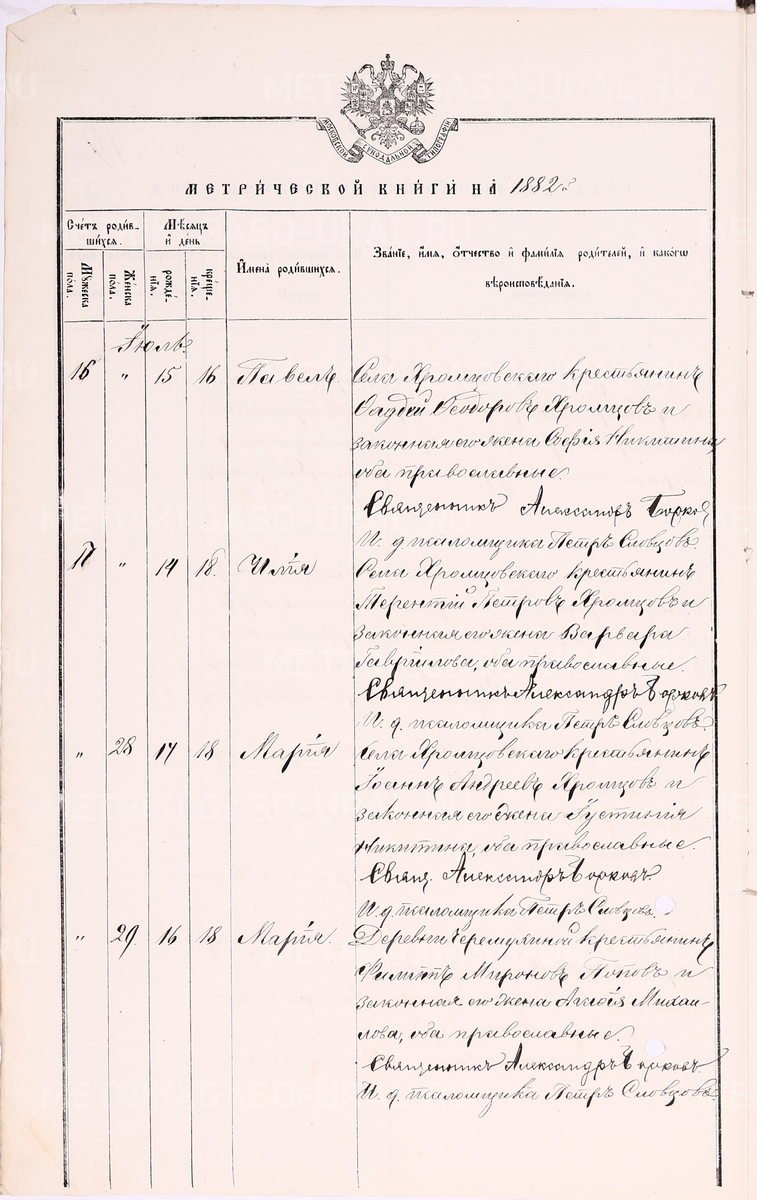 МОСКОВСКОЙ СѴНОДАЛЬНОЙ ТИПОГРАФІИ
МЕТРИ́ЧЕСКОЙ КНИ́ГИ НА́ 1882 й
Сче́тъ роди́вшихся.
Мѣ́сяцъ и҆ де́нь
Мꙋ́жеска по́ла.
Же́нска по́ла.
рожде́нїѧ.
креще́нїѧ.
И҆мена̀ роди́вшихся.
Зва́нїе, и҆́мѧ, ѻ҆́тчество и҆ фами́лїѧ роди́телей, и҆ какѡ́гѡ вѣроисповѣ́данїѧ.
Іюль
16 " 15 16 Павелъ. Села Хромцовскаго крестьянинъ
Фаддей Ѳеодоровъ Хромцовъ и
законная его жена Софія Никитина,
оба православные.
Священникъ Александръ
И. д. псаломщика Петръ Словцовъ.
17 " 14 18. Илія Села Хромцовскаго крестьянинъ
Терентій Петровъ Хромцовъ и
законная его жена Варвара
Гавріилова, оба православные.
Священникъ Александръ
И. д. псаломщика Петръ Словцовъ.
" 28 17 18 Марія Села Хромцовскаго крестьянинъ
Іоаннъ Андреевъ Хромцовъ и
законная его жена Іустинія
Никитина, оба православные.
Свящ. Александръ
И. д. псаломщика Петръ Словцовъ.
" 29 16 18 Марія. Деревни Черемухиной крестьянинъ
Филиппъ Мироновъ Поповъ и
законная его жена Агафія Михаи-
лова, оба православные.
Священникъ Александръ
И. д. псаломщика Петръ Словцовъ.